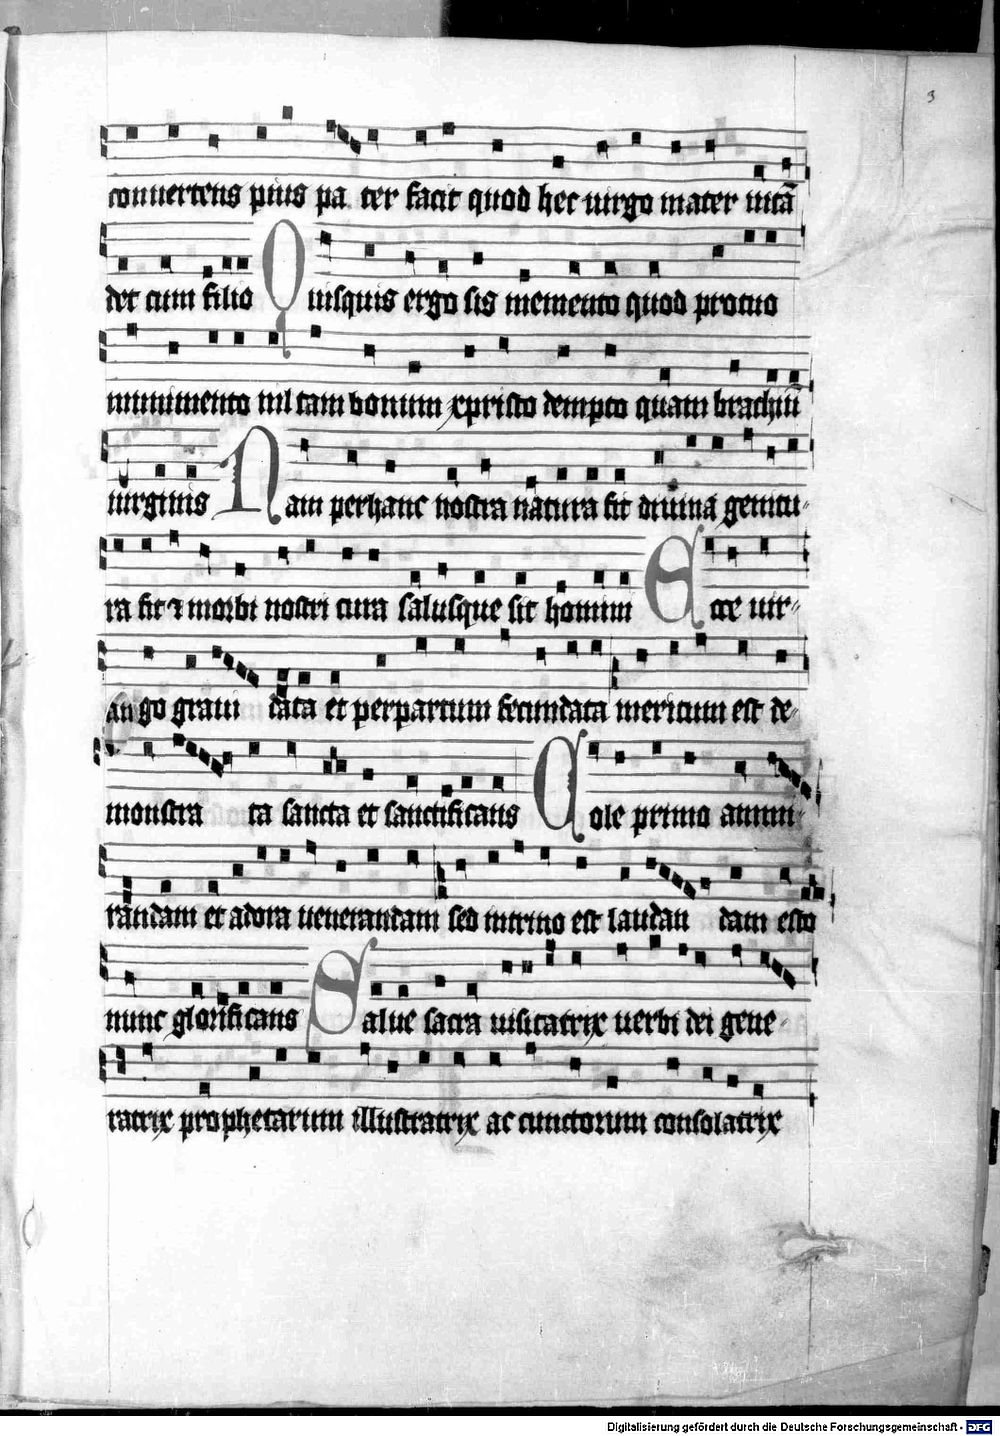 3
conuertens pius pa ter facit quod hec uirgo mater uitā
det cum filio Quisquis ergo sis memento quod protuo
munimento nil tam bonum xpristo dempto quam brachiū
uirginis Nam perhanc nostra natura fit diuina genitu-
ra fit ⁊ morbi nostri cura salusque sit homini Ecce uir-
go graui data et perpartum fecundata meritum est de-
monstra ta sancta et sanctificans Cole primo annun-
randam et adora uenerandam sed intimo est laudan dam esto
nunc glorificans Salue sacra uisitatrix uerbi dei gene-
ratrix prophetarum illustratrix ac cunctorum consolatrix
Digitalisierung gefördert durch die Deutsche Forschungsgemeinschaft - DFG